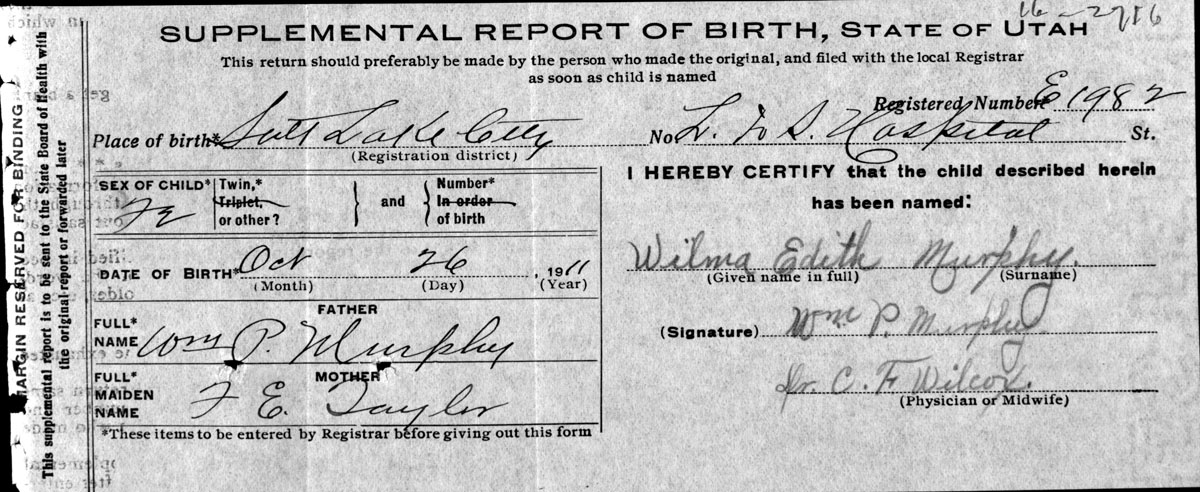 16-2716
SUPPLEMENTAL REPORT OF BIRTH, STATE OF UTAH
This return should preferably be made by the person who made the original, and filed with the local Registrar
as soon as child is named
Registered Number E 1982
Place of birth* Salt Lake City No L. D S. Hospital St.
(Registration district)
MARGIN RESERVED FOR BINDING
This supplemental report is to be sent to the State Board of Health with
the original report or forwarded later
SEX OF CHILD* Fe
Twin,*
Triplet,
or other?
and
Number*
In order
of birth
DATE OF BIRTH* Oct 26, 1911
(Month) (Day) (Year)
FATHER
FULL*
NAME Wm P. Murphy
MOTHER
FULL*
MAIDEN
NAME F E. Taylor
*These items to be entered by Registrar before giving out this form
I HEREBY CERTIFY that the child described herein
has been named:
Wilma Edith Murphy.
(Given name in full) (Surname)
(Signature) Wm P. Murphy
Dr. C. F Wilcox.
(Physician or Midwife)